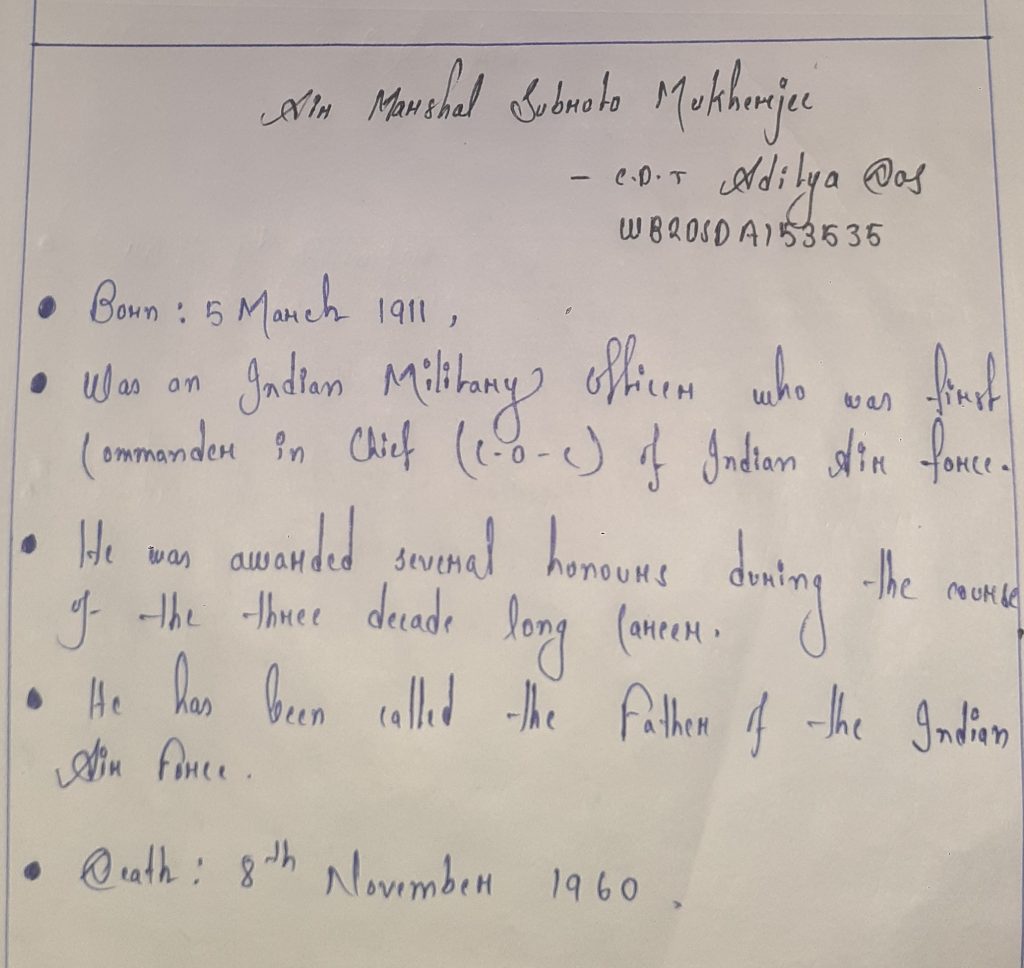 Air Marshal Subroto Mukherjee
- C.D.T Aditya Das
WB20SDA153535
• Born : 5 March 1911 ,
• Was an Indian Military officer who was first
Commander in Chief (C-O-C) of Indian Air force.
• He was awarded several honours during the course
of the three decade long career.
• He has been called the Father of the Indian
Air Force .
• Death : 8th November 1960 .